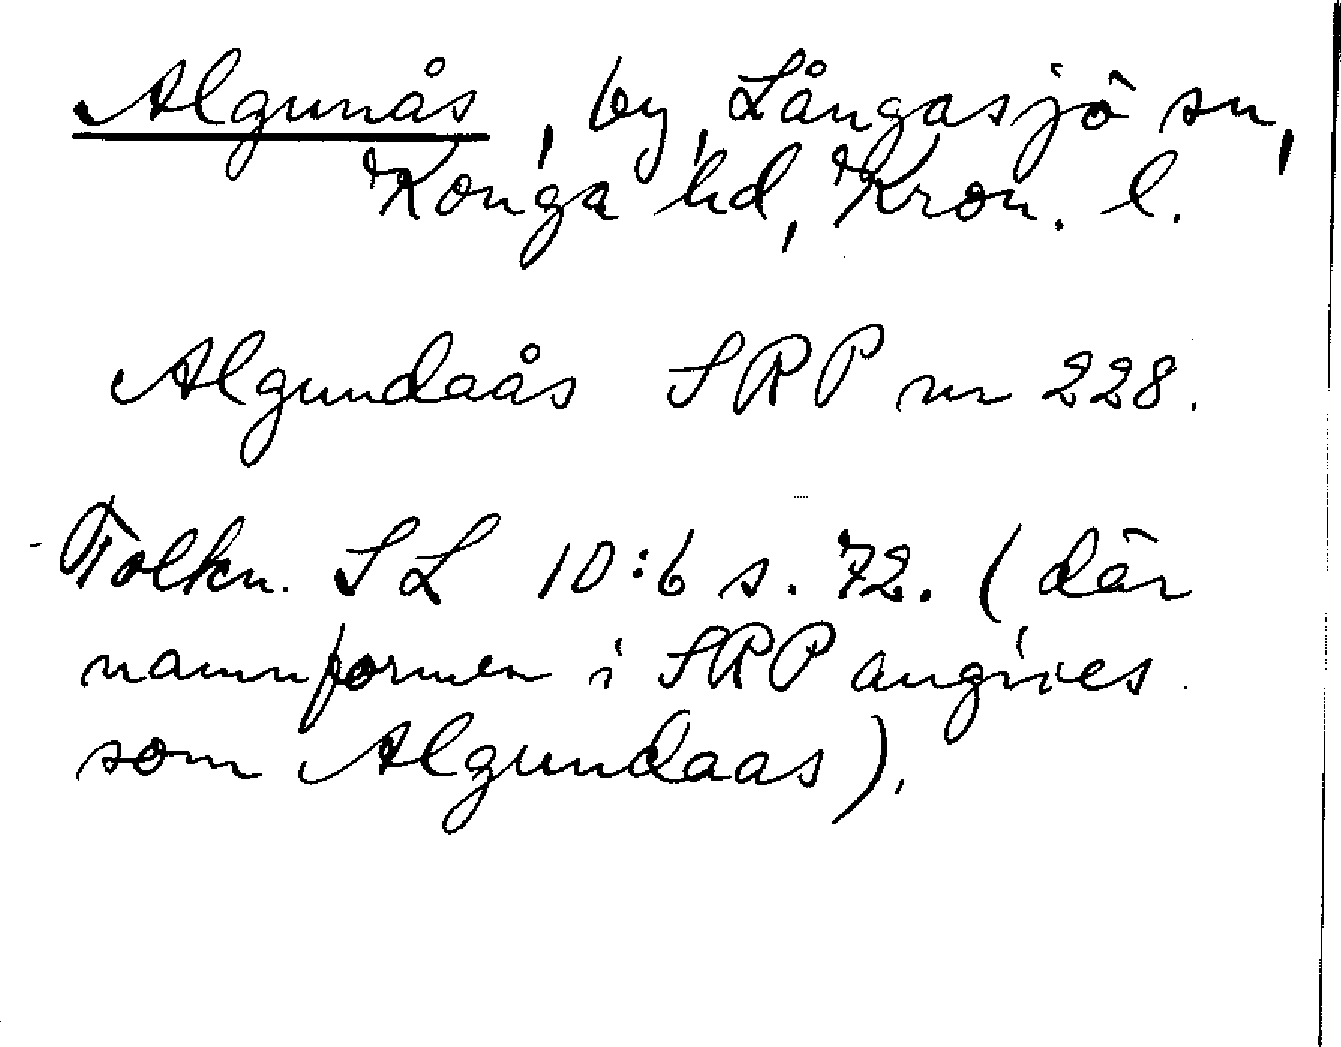 Algunås, by, Långasjö sn,
Konga hd, Kron. l.
Algundaås SRP nr 228.
Tolkn. SL 10:6 s. 72. (där
namnformen i SRP angives
som Algundaas).